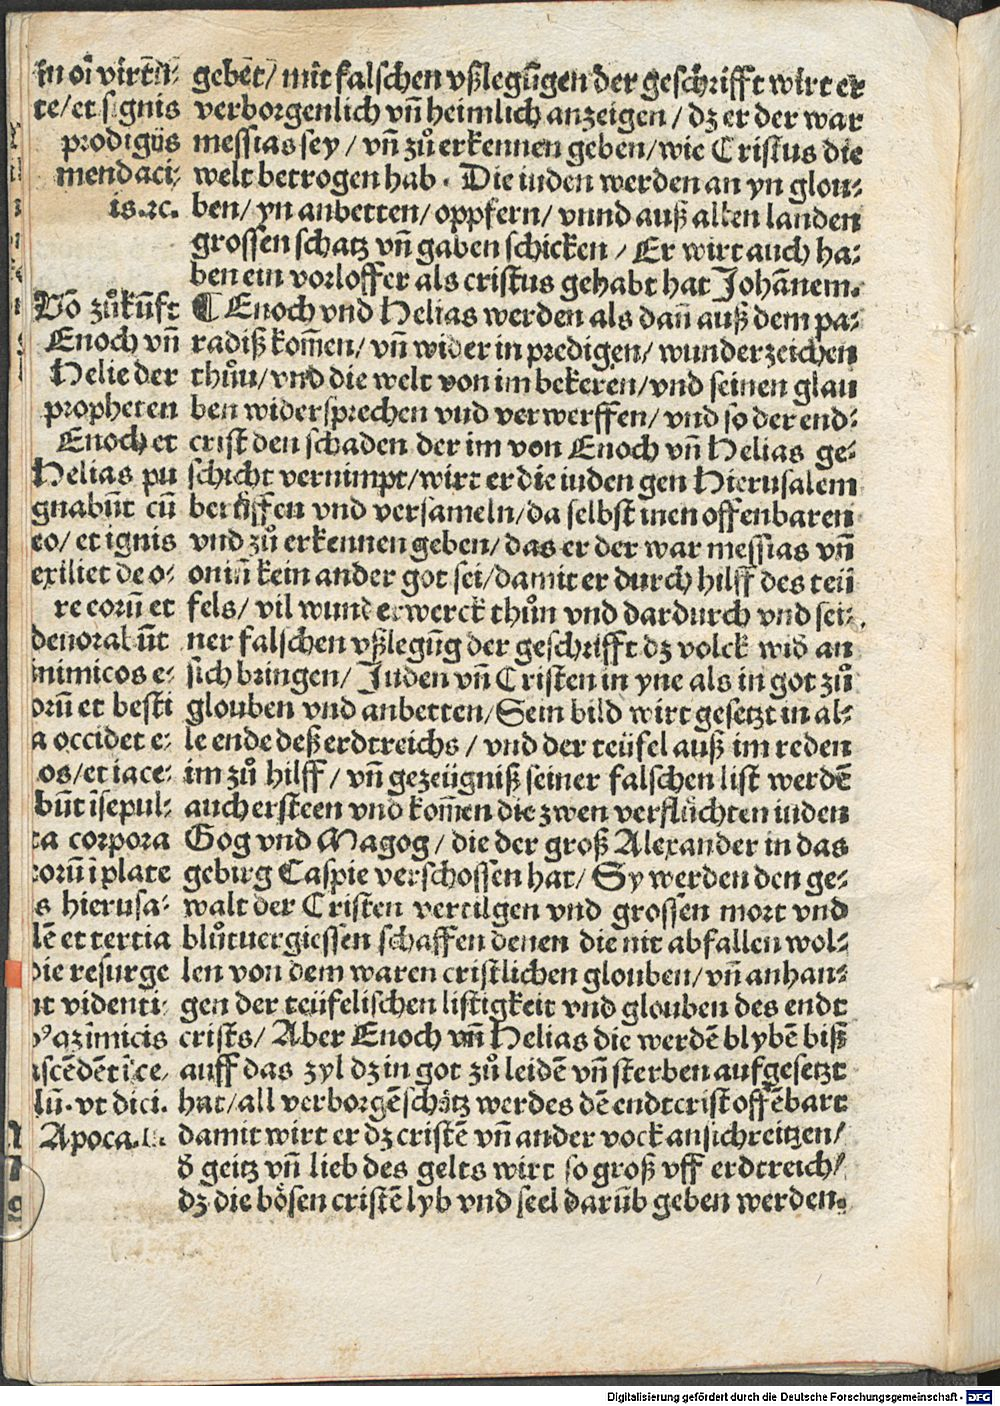 in oi̅ virtu̅-
te/et signis
prodigiis
mendaci-
is.⁊c.
Vō zůkūft
Enoch vn̄
Helie der
propheten
Enoch et
Helias pu
gnabūt cū
eo/ et ignis
exiliet de o-
re eorū et
deuorabūt
inimicos e-
orū et besti
a occidet e-
os/et iace-
būt īsepul-
ta corpora
eorū ī plate
s hierusa-
lē et tertia
die resurge
nt videnti-
inimicis
ascēdēt ī ce,
lū. vt dici.
Apoca.
gebēt/ mit falschen vßlegūgen der geschrifft wirt er
verborgenlich vn̄ heimlich anzeigen / dz er der war
messias sey / vn̄ zů erkennen geben/wie Cristus die
welt betrogen hab. Die iuden werden an yn glou-
ben/ yn anbetten/ oppfern/ vnnd auß allen landen
grossen schatz vn̄ gaben schicken / Er wirt auch ha-
ben ein vorloffer als cristus gehabt hat Johānem.
¶ Enoch vnd Helias werden als dan̄ auß dem pa-
radiß kom̄en/ vn̄ wider in predigen/ wunderzeichen
thůn/ vnd die welt von im bekeren/ vnd seinen glau
ben widersprechen vnd verwerffen/ vnd so der end-
crist den schaden der im von Enoch vn̄ Helias ge-
schicht vernimpt/wirt er die iuden gen Hierusalem
berüffen vnd versameln/da selbst inen offenbaren
vnd zů erkennen geben/ das er der war messias vn̄
on in̄ kein ander got sei/damit er durch hilff des teü
fels/ vil wunderwerck thůn vnd dardurch vnd sei-
ner falschen vßlegūg der geschrifft dz volck wid̄ an
sich bringen/ Juden vn̄ Cristen in yne als in got zů
glouben vnd anbetten/Sein bild wirt gesetzt in al-
le ende deß erdtreichs / vnd der teüfel auß im reden
im zů hilff / vn̄ gezeügniß seiner falschen list werdē
auch ersteen vnd kom̄en die zwen verflůchten iuden
Gog vnd Magog/ die der groß Alexander in das
gebirg Caspie verschossen hat/ Sy werden den ge-
walt der Cristen vertilgen vnd grossen mort vnd
blůtuergiessen schaffen denen die nit abfallen wol-
len von dem waren cristlichen glouben/ vn̄ anhan-
gen der teüfelischen listigkeit vnd glouben des endt
crists/ Aber Enoch vn̄ Helias die werdē blybē biß
auff das zyl dz in got zů leidē vn̄ sterben aufgesetzt
hat/all verborgē schätz werdes dē endtcrist offēbart
damit wirt er dz cristē vn̄ ander vock an sich reitzen/
d̄ geitz vn̄ lieb des gelts wirt so groß vff erdtreich/
dz die bösen cristē lyb vnd seel darūb geben werden.
Digitalisierung gefördert durch die Deutsche Forschungsgemeinschaft - DFG